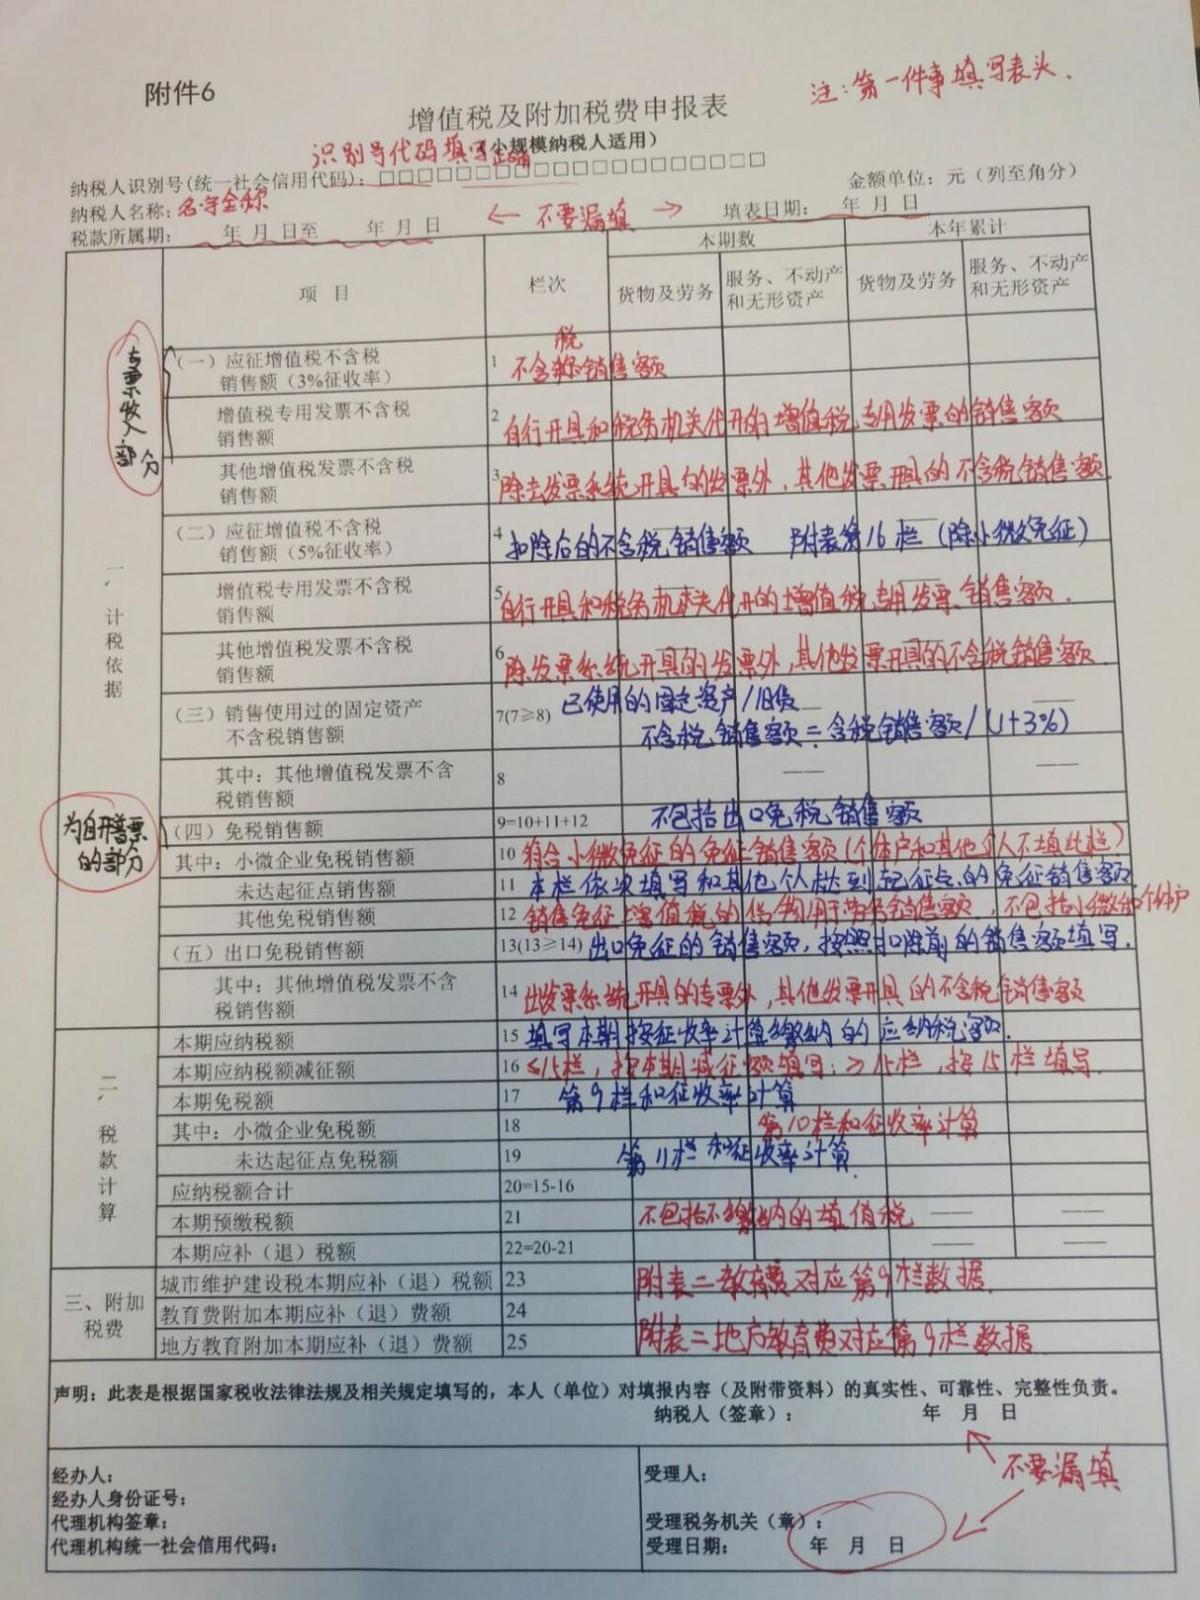 附件6
注：第一件事填写表头.
增值税及附加税费申报表
（小规模纳税人适用）
识别号代码填写正确
纳税人识别号(统一社会信用代码)：□□□□□□□□□□□□□□□□□□□□
金额单位：元（列至角分）
纳税人名称：名字全称
← 不要漏填 →
填表日期： 年 月 日
税款所属期： 年 月 日至 年 月 日
项 目 栏次 本期数 本年累计
货物及劳务 服务、不动产和无形资产 货物及劳务 服务、不动产和无形资产
一、计税依据
专票收入部分
（一）应征增值税不含税销售额（3%征收率） 1 不含税销售额
增值税专用发票不含税销售额 2 自行开具和税务机关代开的增值税专用发票的销售额
其他增值税发票不含税销售额 3 除去发票系统开具的发票外，其他发票开具的不含税销售额.
（二）应征增值税不含税销售额（5%征收率） 4 扣除后的不含税销售额 附表第16栏（除小微免征）
增值税专用发票不含税销售额 5 自行开具和税务机关代开的增值税专用发票销售额.
其他增值税发票不含税销售额 6 除发票系统开具的发票外，其他发票开具的不含税销售额
（三）销售使用过的固定资产不含税销售额 7(7≥8) 已使用的固定资产/旧货
不含税销售额=含税销售额/(1+3%)
其中：其他增值税发票不含税销售额 8 —— ——
为自开普票的部分
（四）免税销售额 9=10+11+12 不包括出口免税销售额
其中：小微企业免税销售额 10 符合小微免征的免征销售额(个体户和其他个人不填此栏)
未达起征点销售额 11 本栏依次填写和其他个人达到起征点的免征销售额
其他免税销售额 12 销售免征增值税的货物用于劳务销售额，不包括小微和个体户
（五）出口免税销售额 13(13≥14) 出口免征的销售额，按照扣除前的销售额填写.
其中：其他增值税发票不含税销售额 14 出发票系统开具的专票外，其他发票开具的不含税销售额
二、税款计算
本期应纳税额 15 填写本期按征收率计算缴纳的应纳税额.
本期应纳税额减征额 16 ≤15栏，按本期减征额填写；≥15栏，按15栏填写.
本期免税额 17 第9栏和征收率计算
其中：小微企业免税额 18 第10栏和征收率计算
未达起征点免税额 19 第11栏和征收率计算.
应纳税额合计 20=15-16
本期预缴税额 21 不包括不缴纳的填值税 —— ——
本期应补（退）税额 22=20-21 —— ——
三、附加税费
城市维护建设税本期应补（退）税额 23 附表二教育费对应第9栏数据.
教育费附加本期应补（退）费额 24
地方教育附加本期应补（退）费额 25 附表二地方教育费对应第9栏数据
声明：此表是根据国家税收法律法规及相关规定填写的，本人（单位）对填报内容（及附带资料）的真实性、可靠性、完整性负责。
纳税人（签章）： 年 月 日
不要漏填
经办人：
经办人身份证号：
代理机构签章：
代理机构统一社会信用代码：
受理人：
受理税务机关（章）：
受理日期： 年 月 日